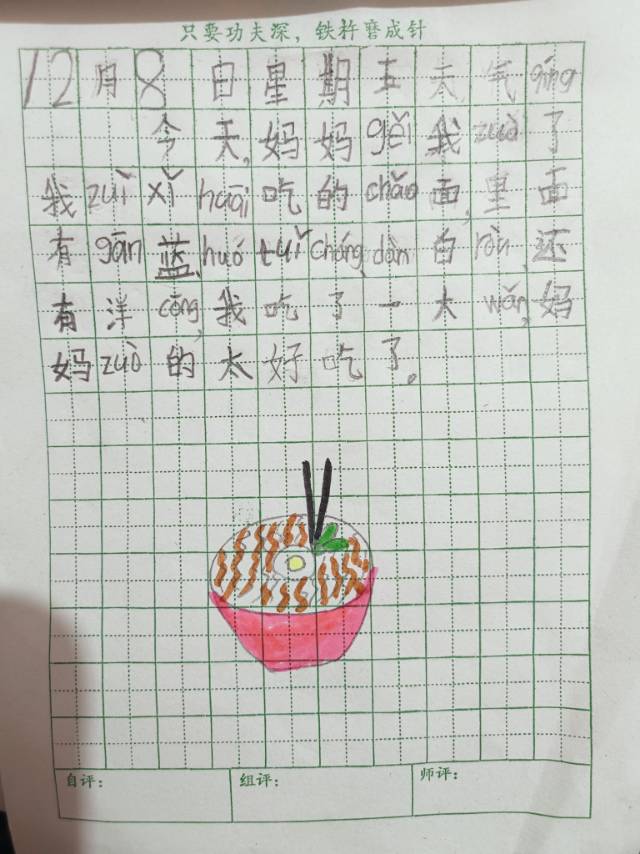 只要功夫深，铁杵磨成针
12月8日星期五天气qíng
今天，妈妈gěi我zuò了
我zuì xǐ huān吃的chǎo面，里面
有gān蓝、huó tuǐ cháng、dàn白ròu，还
有洋cōng，我吃了一大wǎn，妈
妈zuò的太好吃了。
自评：
组评：
师评：